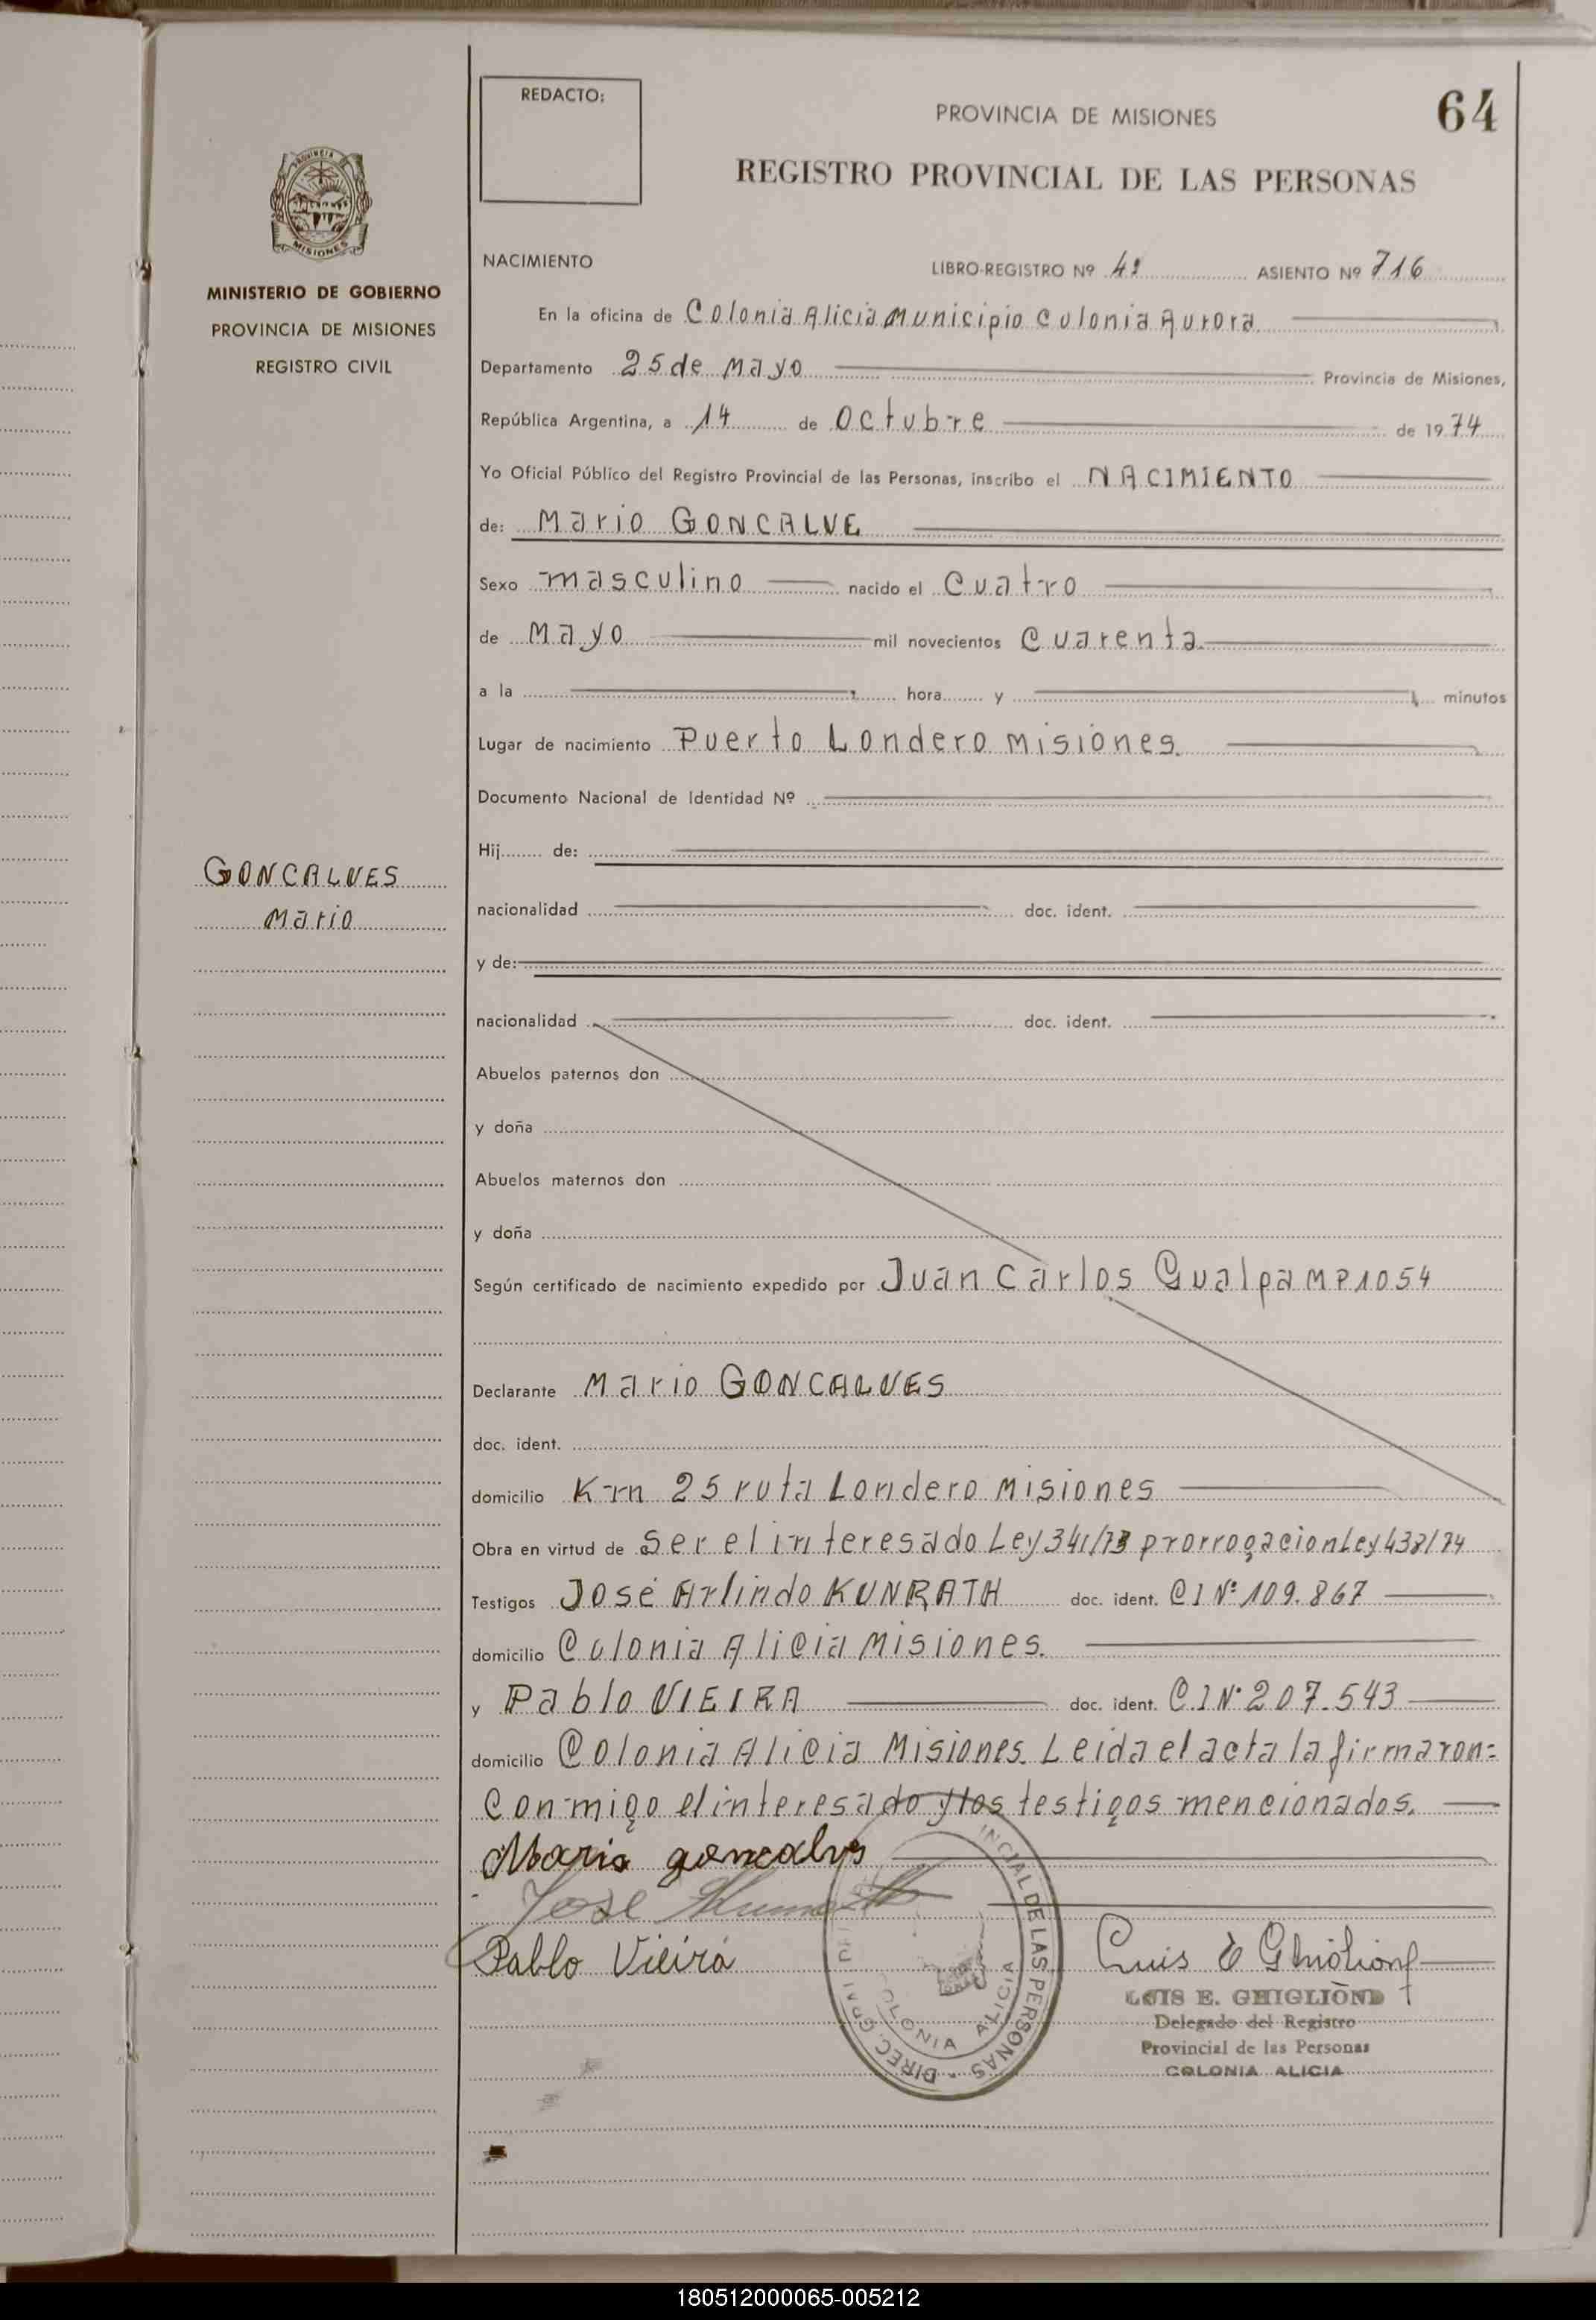 REDACTO:
PROVINCIA DE MISIONES
64
REGISTRO PROVINCIAL DE LAS PERSONAS
PROVINCIA DE
MISIONES
MINISTERIO DE GOBIERNO
PROVINCIA DE MISIONES
REGISTRO CIVIL
NACIMIENTO
LIBRO-REGISTRO Nº 4º ASIENTO Nº 716
En la oficina de Colonia Alicia Municipio Colonia Aurora
Departamento 25 de Mayo Provincia de Misiones,
República Argentina, a 14 de Octubre de 1974
Yo Oficial Público del Registro Provincial de las Personas, inscribo el NACIMIENTO
de: Mario GONCALVE
Sexo masculino nacido el Cuatro
de Mayo mil novecientos Cuarenta
a la hora y minutos
Lugar de nacimiento Puerto Londero Misiones
Documento Nacional de Identidad Nº
Hij de:
GONCALVES
Mario
nacionalidad doc. ident.
y de:
nacionalidad doc. ident.
Abuelos paternos don
y doña
Abuelos maternos don
y doña
Según certificado de nacimiento expedido por Juan Carlos Gualpa MP1054
Declarante Mario GONCALVES
doc. ident.
domicilio Km 25 ruta Londero Misiones
Obra en virtud de Ser el interesado Ley 341/73 prorrogacion Ley 438/74
Testigos José Arlindo KUNRATH doc. ident. CI Nº 109.867
domicilio Colonia Alicia Misiones.
y Pablo VIEIRA doc. ident. CI Nº 207.543
domicilio Colonia Alicia Misiones. Leida el acta la firmaron=
Conmigo el interesado y los testigos mencionados.
Mario goncalvs
Jose
Pablo Vieira
Luis E Ghiglione
LUIS E. GHIGLIONE
Delegado del Registro
Provincial de las Personas
COLONIA ALICIA
DIREC. GRAL
INCIAL DE LAS PERSONAS
COLONIA ALICIA
180512000065-005212